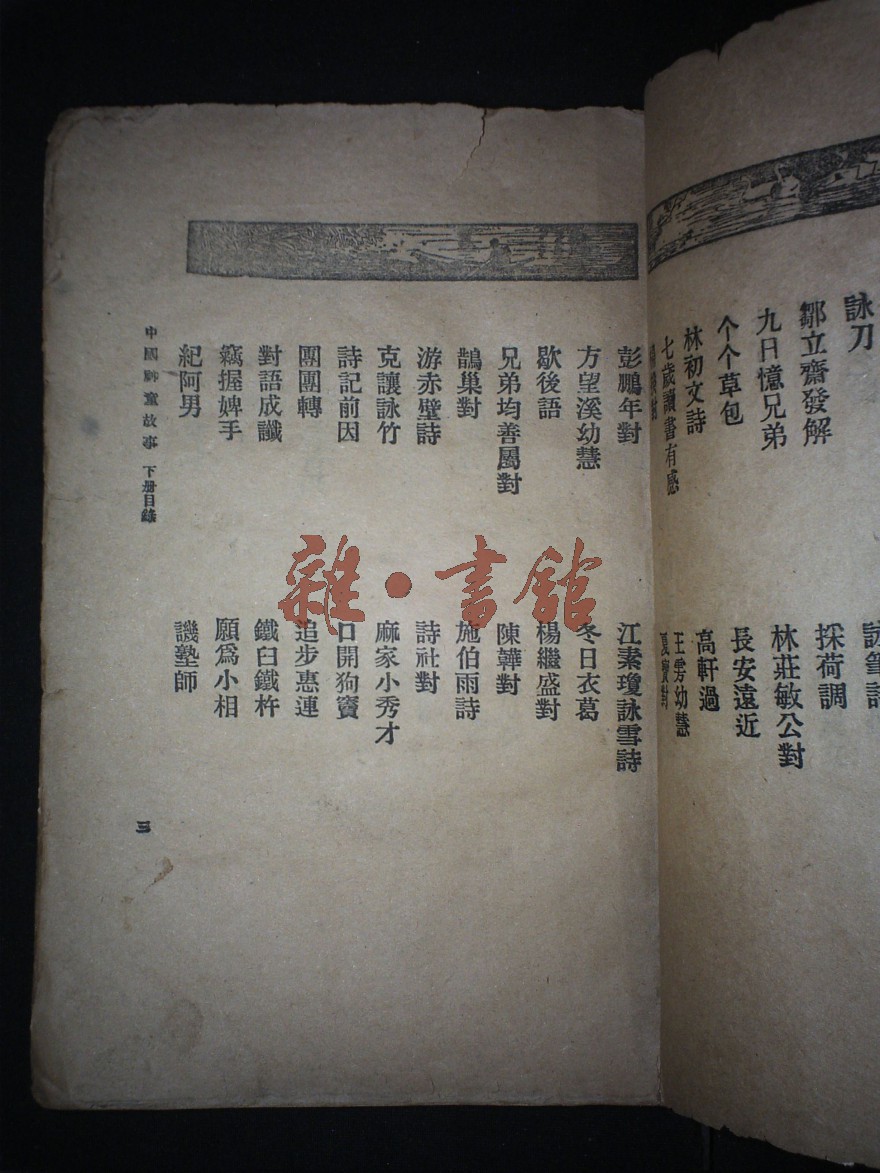 詠刀
鄒立齋發解
九日憶兄弟
个个草包
林初文詩
七歲讀書有感
採荷調
林莊敏公對
長安遠近
高軒過
王雱幼慧
彭鵬年對
方望溪幼慧
歇後語
兄弟均善屬對
鵲巢對
游赤壁詩
克讓詠竹
詩記前因
團團轉
對語成讖
竊握婢手
紀阿男
江素瓊詠雪詩
冬日衣葛
楊繼盛對
陳韡對
施伯雨詩
詩社對
麻家小秀才
口開狗竇
追步惠連
鐵臼鐵杵
願爲小相
譏塾師
中國神童故事 下册目錄
三
雜·書館